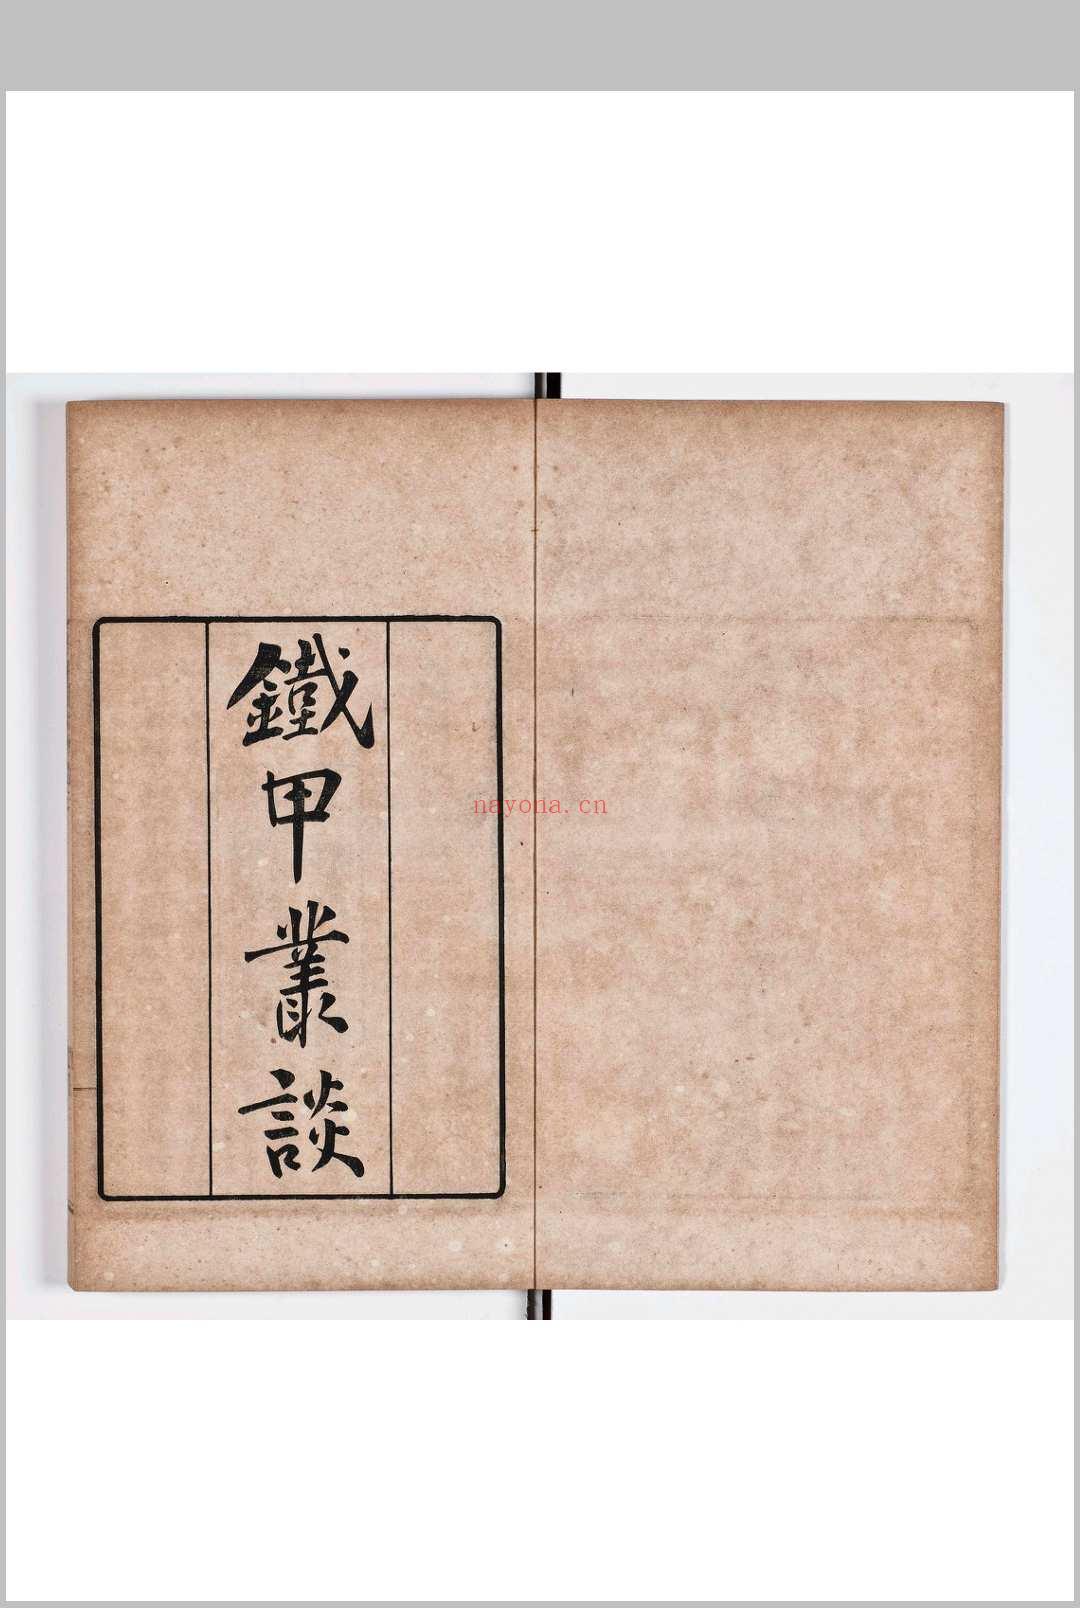 鐵甲叢談
nayona.cn